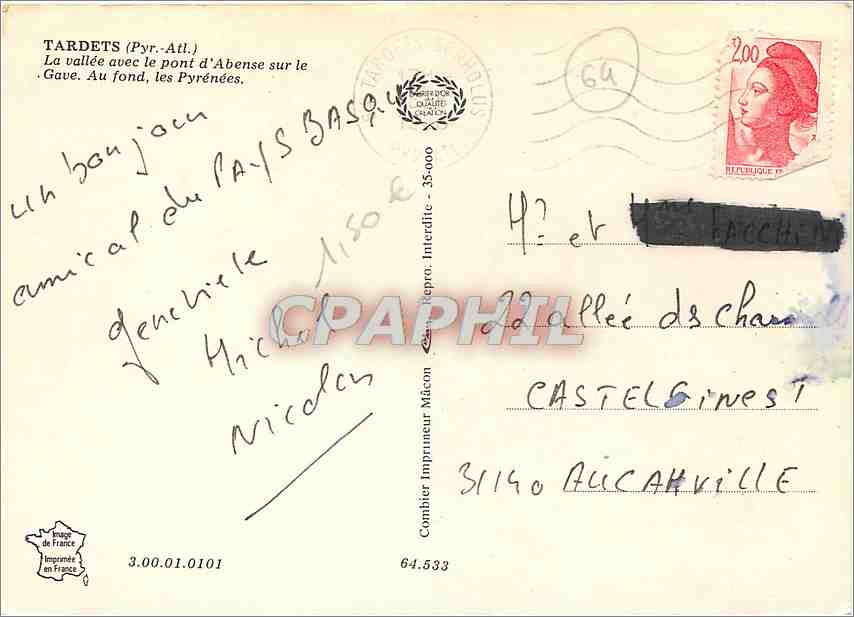 TARDETS (Pyr.-Atl.)
La vallée avec le pont d'Abense sur le
Gave. Au fond, les Pyrénées.
un bonjour
amical du PAYS BASQUE
Geneviève
Michel
Nicolas
1,50 €
64
2,00
REPUBLIQUE
TARDETS SORHOLUS
LAURIER D'OR
DE LA
QUALITÉ
CRÉATION
Combier Imprimeur Mâcon
Repro. Interdite - 35-000
CPAPHIL
et
22 allée ds
CASTELGINEST
31140 AUCAMVILLE
Image
de France
Imprimée
en France
3.00.01.0101
64.533